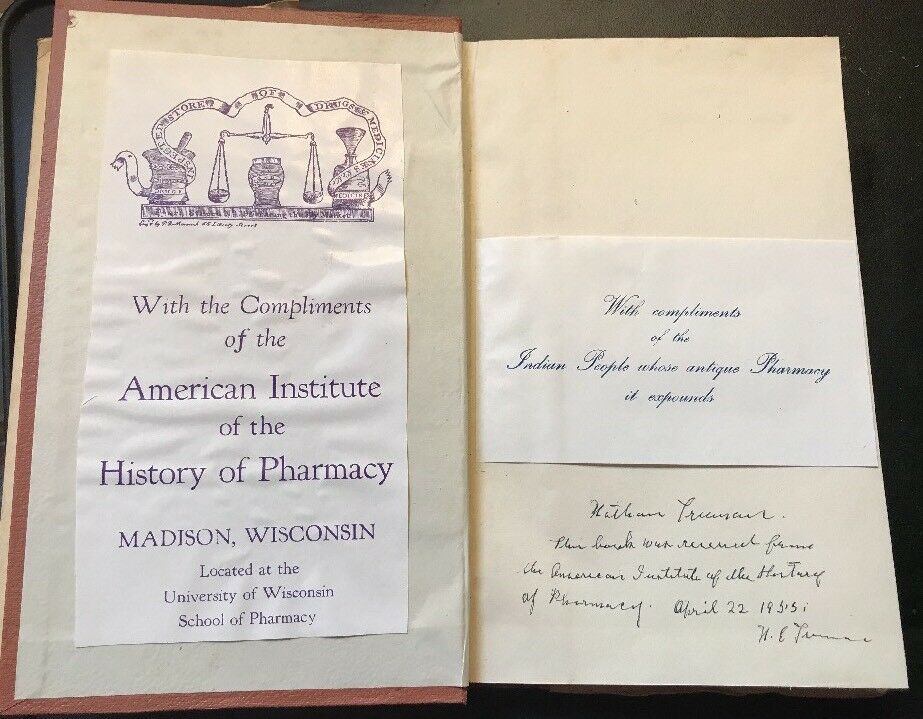 STORE OF DRUGS & MEDICIN
With the Compliments
of the
American Institute
of the
History of Pharmacy
MADISON, WISCONSIN
Located at the
University of Wisconsin
School of Pharmacy
With compliments
of the
Indian People whose antique Pharmacy
it expounds
Nathan
This book was received from
the American Institute of the History
of Pharmacy. April 22 1955.